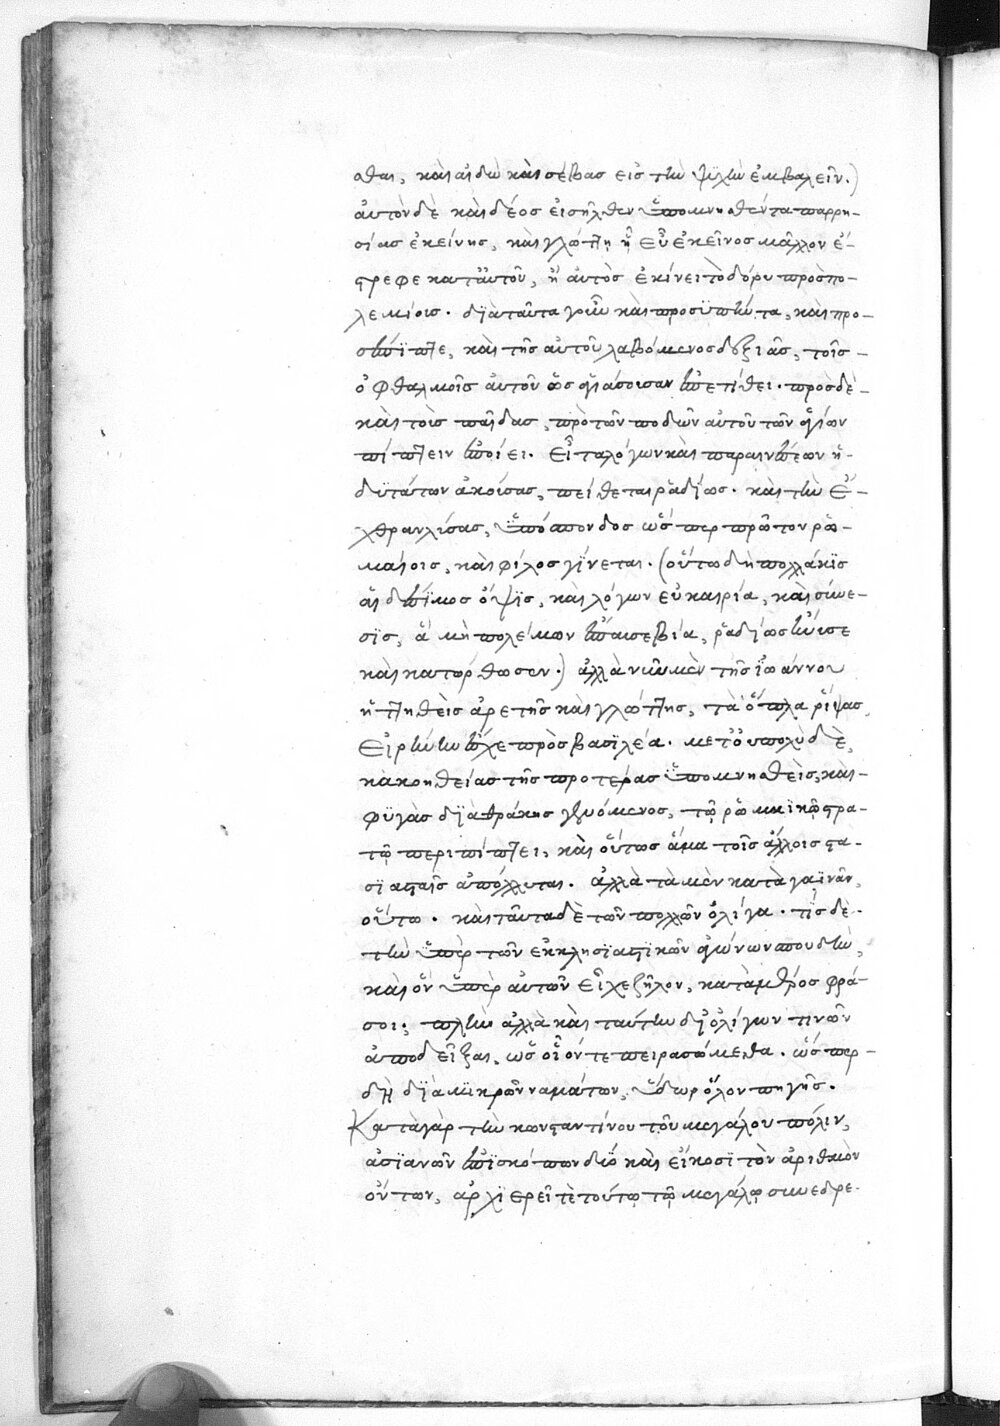 σθαι, καὶ αἰδὼ καὶ σέβας εἰς τὴν ψυχὴν ἐμβαλεῖν.)
αὐτὸν δὲ καὶ δέος εἰσῆλθεν ὑπομνησθέντα παρρη-
σίας ἐκείνης, καὶ γλώττῃ ᾗ εὖ ἐκεῖνος μᾶλλον ἔ-
στρεφε κατ' αὐτοῦ, ἢ αὐτὸς ἐκίνει τὸ δόρυ πρὸς πο-
λεμίοις. διὰ ταῦτα γοῦν καὶ προσυπήντα, καὶ προ-
σέπιπτε, καὶ τῆς αὐτοῦ λαβόμενος δεξιᾶς, τοῖς
ὀφθαλμοῖς αὐτοῦ ὡς ἁγιάσουσαν ἐπετίθει. πρὸς δὲ
καὶ τοὺς παῖδας, πρὸ τῶν ποδῶν αὐτοῦ τῶν ἁγίων
πίπτειν ἐποίει. εἶτα λόγων καὶ παραινέσεων ἡ-
δυτάτων ἀκούσας, πείθεται ῥαδίως. καὶ τὴν ἔ-
χθραν λύσας, ὑπόσπονδος ὥσπερ πρῶτον ῥω-
μαίοις, καὶ φίλος γίνεται. (οὕτω δὴ πολλάκις
αἰδέσιμος ὄψις, καὶ λόγων εὐκαιρία, καὶ σύνε-
σις, ἃ μὴ πολέμων ἐμπειρία, ῥαδίως ἤνυσε
καὶ κατώρθωσεν.) ἀλλὰ νῦν μὲν τῆς ἰωάννου
ἡττηθεὶς ἀρετῆς καὶ γλώττης, τὰ ὅπλα ῥίψας,
εἰρήνην εἶχε πρὸς βασιλέα. μετ' οὐ πολὺ δὲ,
κακοηθείας τῆς προτέρας ὑπομνησθεὶς, καὶ
φυγὰς διὰ θράκης γενόμενος, τῷ ῥωμαϊκῷ στρα-
τῷ περιπίπτει, καὶ οὕτως ἅμα τοῖς ἄλλοις στα-
σιασταῖς ἀπόλλυται. ἀλλὰ τὰ μὲν κατὰ γαϊνᾶν,
οὕτω. καὶ ταῦτα δὲ τῶν πολλῶν ὀλίγα. τίς δὲ
τὴν ὑπὲρ τῶν ἐκκλησιαστικῶν ἀγώνων σπουδὴν,
καὶ ὃν ὑπὲρ αὐτῶν εἶχε ζῆλον, κατὰ μέρος φρά-
σοι; πλὴν ἀλλὰ καὶ ταύτην δι' ὀλίγων τινῶν
ἀποδεῖξαι, ὡς οἷόν τε πειρασόμεθα. ὥσπερ
δὴ διὰ μικρῶν ναμάτων, ὕδωρ ὅλον πηγῆς.
Κατὰ γὰρ τὴν κωνσταντίνου τοῦ μεγάλου πόλιν,
ἀσιανῶν ἐπισκόπων δύο καὶ εἴκοσι τὸν ἀριθμὸν
ὄντων, ἀρχιερεῖ τὲ τούτῳ τῷ μεγάλῳ συνεδρε-